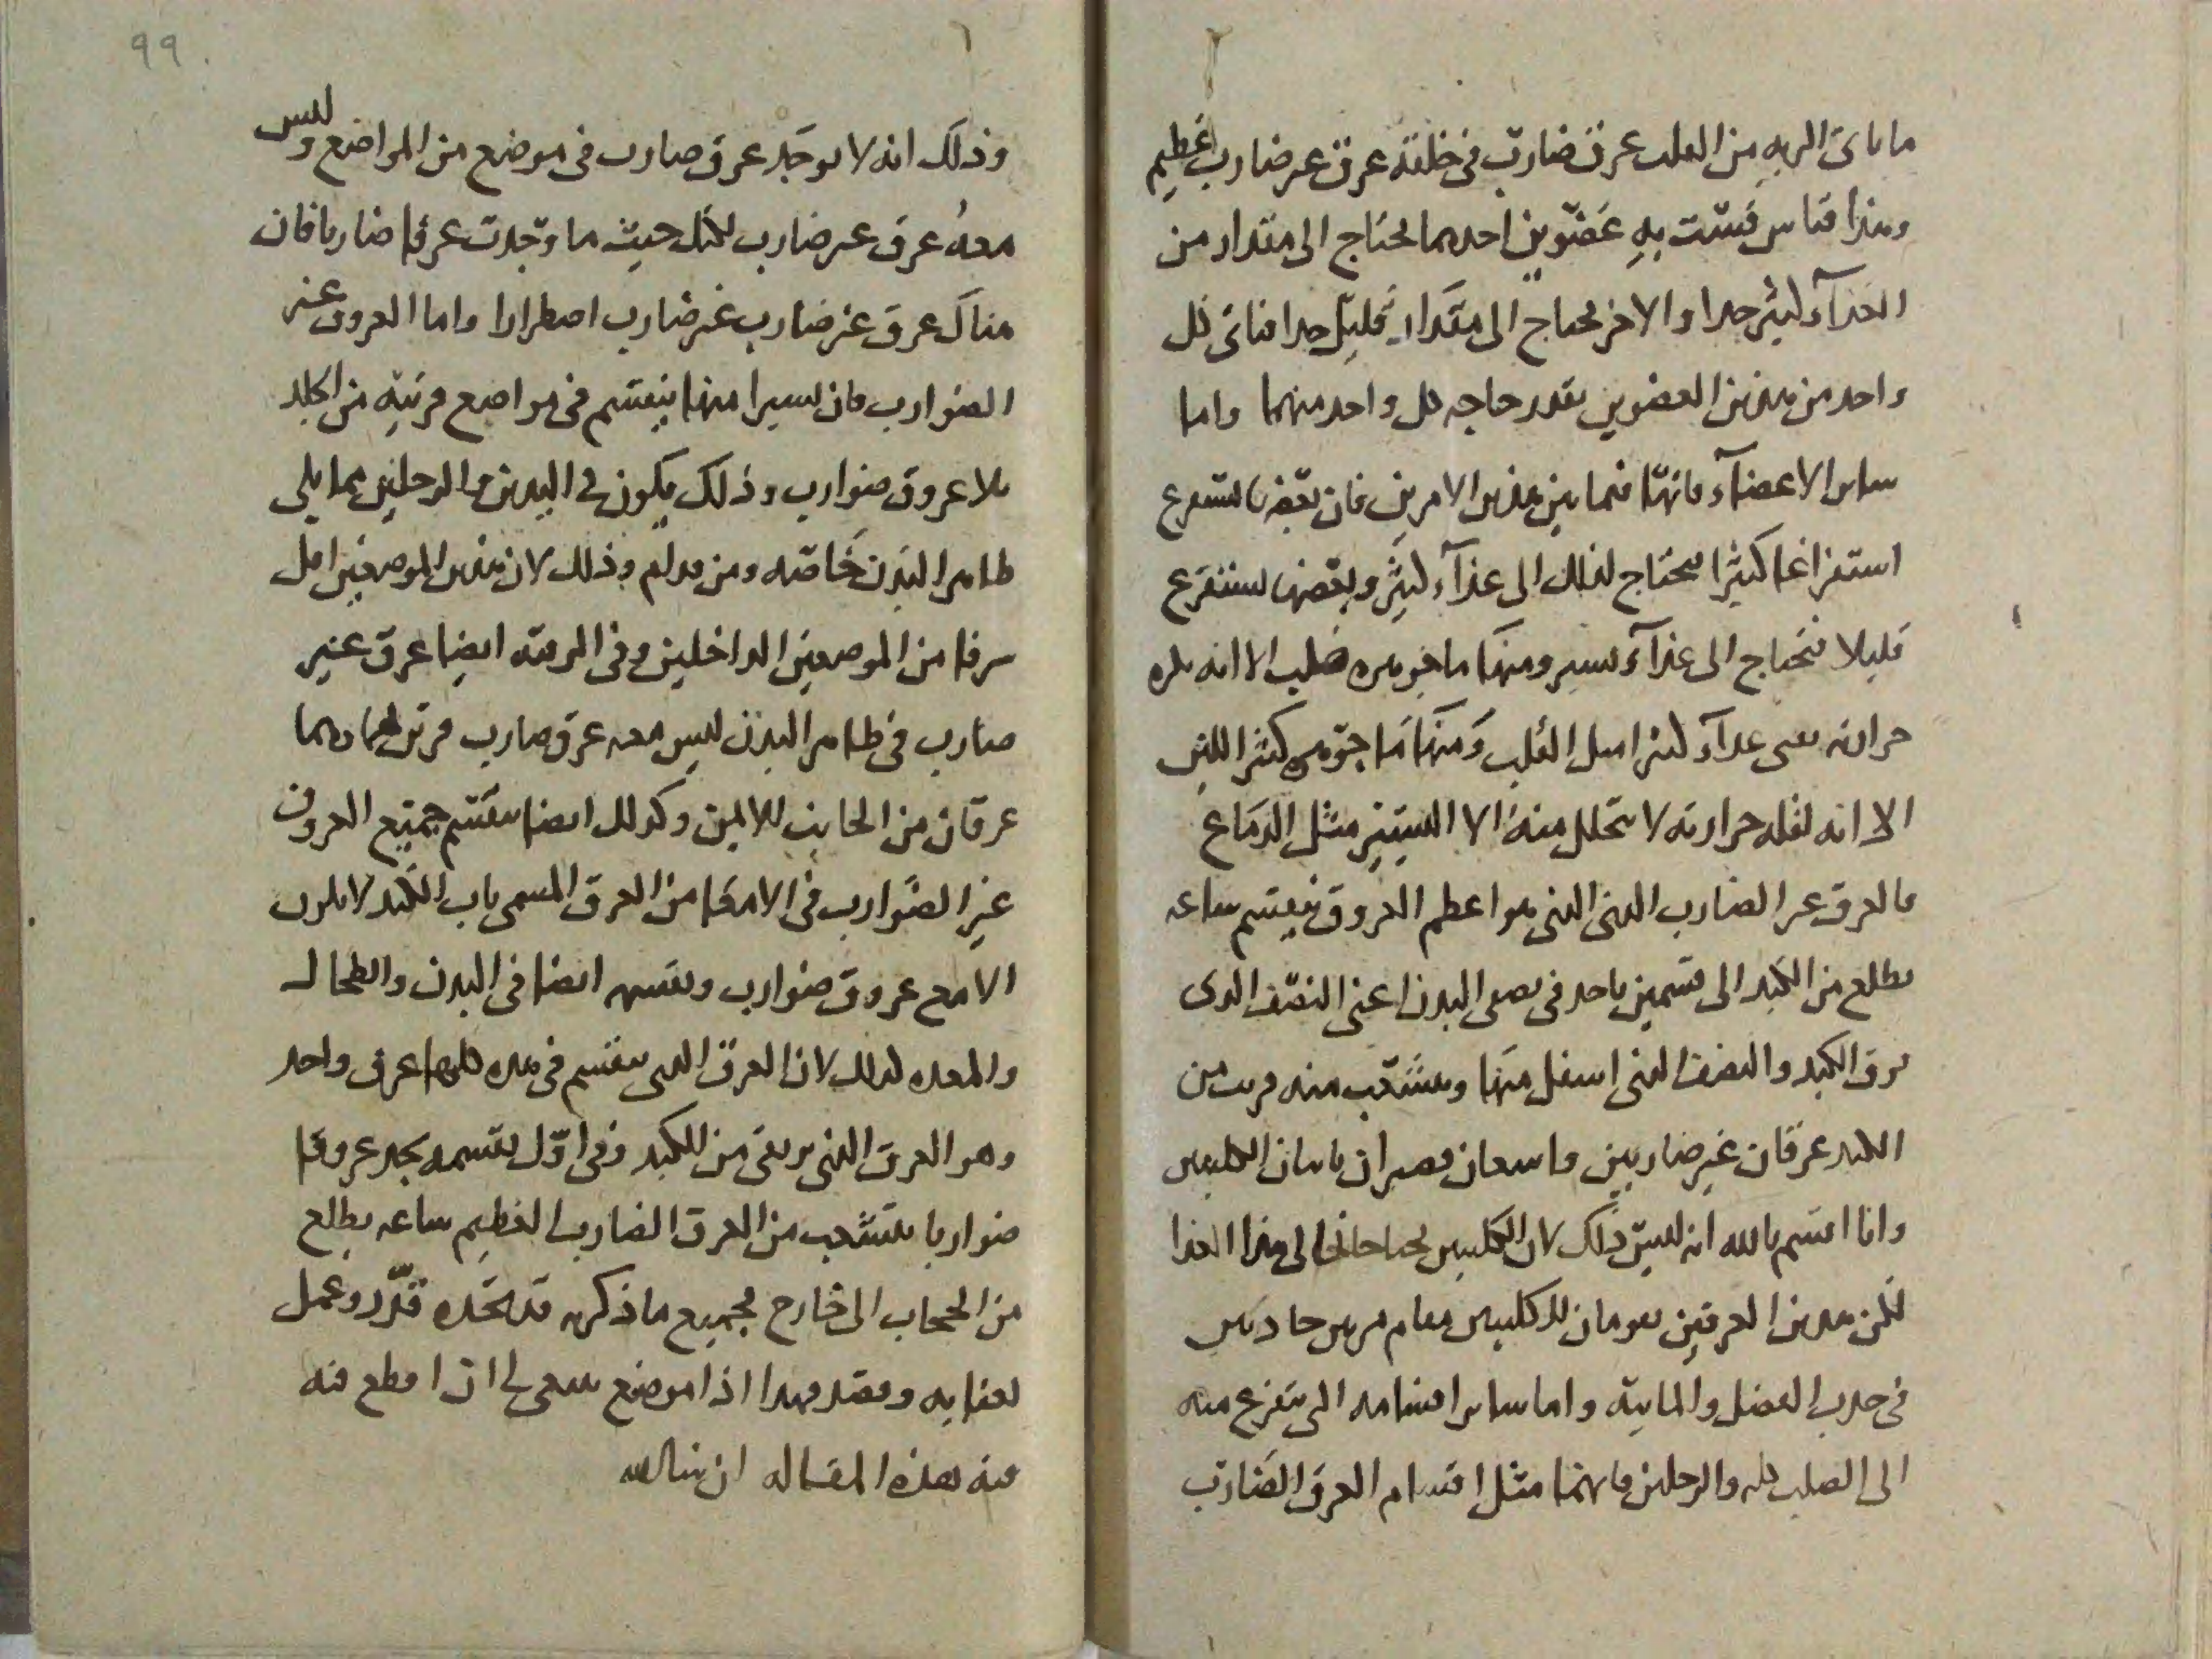 ما ياتى الريه من القلب عرق ضارب فى خلقته عرق غير ضارب عظيم
وهذا قياس قست به عضوين احدهما يحتاج الى مقدار من
الغذآء كثير جدا والاخر يحتاج الى مقدار قليل جدا فياتى كل
واحد من هذين العضوين بقدر حاجه كل واحد منهما واما
ساير الاعضآء فانها فيما بين هذين الامرين فان بعضها يستفرغ
استفراغا كثيرا فيحتاج لذلك الى غذآء كثير وبعضها يستفرغ
قليلا فيحتاج الى غذآء يسير ومنها ما جوهره صلب الا انه لكثره
حرارته يغتذى غذآء كثيرا مثل القلب ومنها ما جوهره كثير اللين
الا انه لقله حرارته لا يتحلل منه الا اليسير مثل الدماغ
فالعرق غير الضارب الذى هو اعظم العروق ينقسم ساعه
يطلع من الكبد الى قسمين ياخذ فى نصفى البدن اعنى النصف الذى
فوق الكبد والنصف الذى اسفل منها ويتشعب منه قريب من
الكبد عرقان غير ضاربين واسعان قصيران ياتيان الكليتين
وانا اقسم بالله انه ليس ذلك لان الكليتين يحتاجان الى هذا الغذا
لكن هذين العرقين يقومان للكليتين مقام مرين جاذبين
فى جذب الفضل والمائيه واما ساير اقسامه التى يتفرع منه
الى الصلب كله والرجلين فانها مثل اقسام العرق الضارب
99
وذلك انه لا يوجد عرق ضارب فى موضع من المواضع وليس
معه عرق غير ضارب لكل حيث ما وجدت عرقا ضاربا فان
هناك عرق غير ضارب غير ضارب اضطرارا واما العروق غير
الضوارب فان يسيرا منها ينقسم فى مواضع قريبه من الجلد
بلا عروق ضوارب وذلك يكون فى اليدين والرجلين مما يلى
ظاهر البدن خاصه ومن قدام وذلك لان هذين الموضعين اقل
شرفا من الموضعين الداخلين وفى الرقبه ايضا عرق غير
ضارب فى ظاهر البدن ليس معه عرق ضارب
عرقان من الجانب الايمن وكذلك ايضا ينقسم جميع العروق
غير الضوارب فى الامعا من العرق المسمى باب الكبد لا يكون
الا مع عروق ضوارب وينقسم ايضا فى البدن والطحال
والمعده كذلك لان العرق الذى ينقسم فى هذه كلها عرق واحد
وهو العرق الذى يرتقى من الكبد وفى اول تقسمه يجد عروقا
ضواربا يتشعب من العرق الضارب العظيم ساعه يطلع
من الحجاب الى خارج فجميع ما ذكرنا قد تجده قدر وعمل
بعنايه وبقصد فهذا اذا موضع ينبغى لى ان اقطع فيه
فيه هذه المقاله ان شا الله